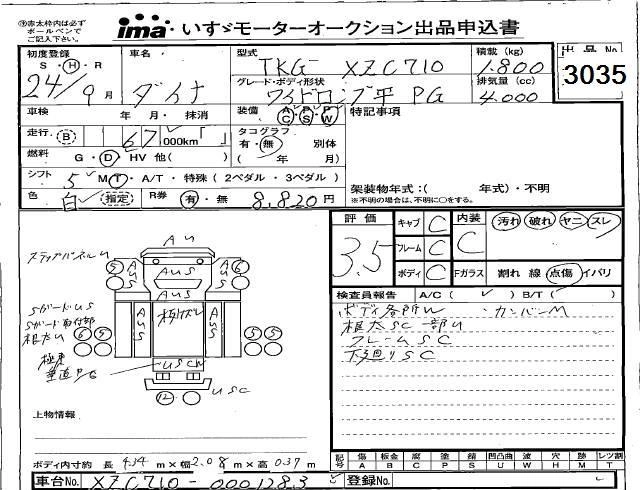 ※赤太枠内は必ず
ボールペンで
ご記入下さい。
ima いすゞモーターオークション出品申込書
初度登録 車名 型式 積載(kg) 出品No
S・H・R TKG- XZC710 1,800 3035
24/9月 ダイナ グレード・ボディ形状 排気量(cc)
ワイドロング平 PG 4,000
車検 年 月・抹消 装備 AC PS PW 特記事項
走行 B 67 000km「 」 タコグラフ
有・無 別体
燃料 G・D・HV 他( ) ( 年 月)
シフト 5 MT・A/T・特殊(2ペダル・3ペダル)
色 白 指定 R券 有・無 8,820円
架装物年式:( 年式)・不明
※不明の場合は、不明に○をする。
評価 3.5
キャブ C 内装 C 汚れ 破れ ヤニ スレ
フレーム C
ボディ C Fガラス 割れ 線 点傷 イバリ
検査員報告 A/C( ✓ ) B/T( )
ボディ各所W カンバンM
根太SC一部U
フレームSC
下廻りSC
ステップパネルU
AU
AUS
AUS
AUS
5 6
SガードUS
Sガード取付部
根太U
AUS
AUS
6 5 5 5
USCW
垂直PG
12
USC
上物情報
ボディ内寸約 長 4.14 m×幅 2.08 m×高 0.37 m
記号 傷A 板金B 腐C 塗P 錆S 凹凸曲U 波W 穴H 跡M レンズ割T
車台No. XZC710-0001283 登録No.